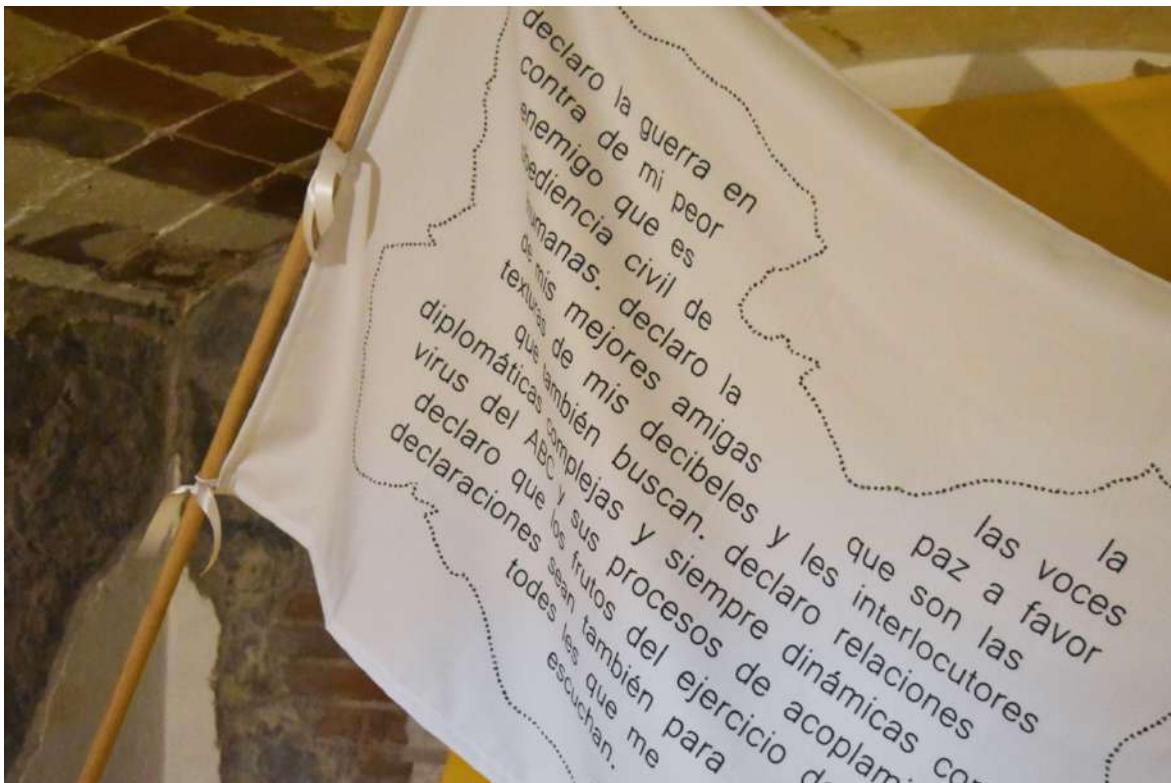 declaro la guerra en
contra de mi peor
enemigo que es la
obediencia civil de las voces
humanas. declaro la paz a favor
de mis mejores amigas que son las
texturas de mis decibeles y les interlocutores
que también buscan. declaro relaciones
diplomáticas complejas y siempre dinámicas con
virus del ABC y sus procesos de
declaro que los frutos del ejercicio
declaraciones sean también para
todes les que me
escuchan.